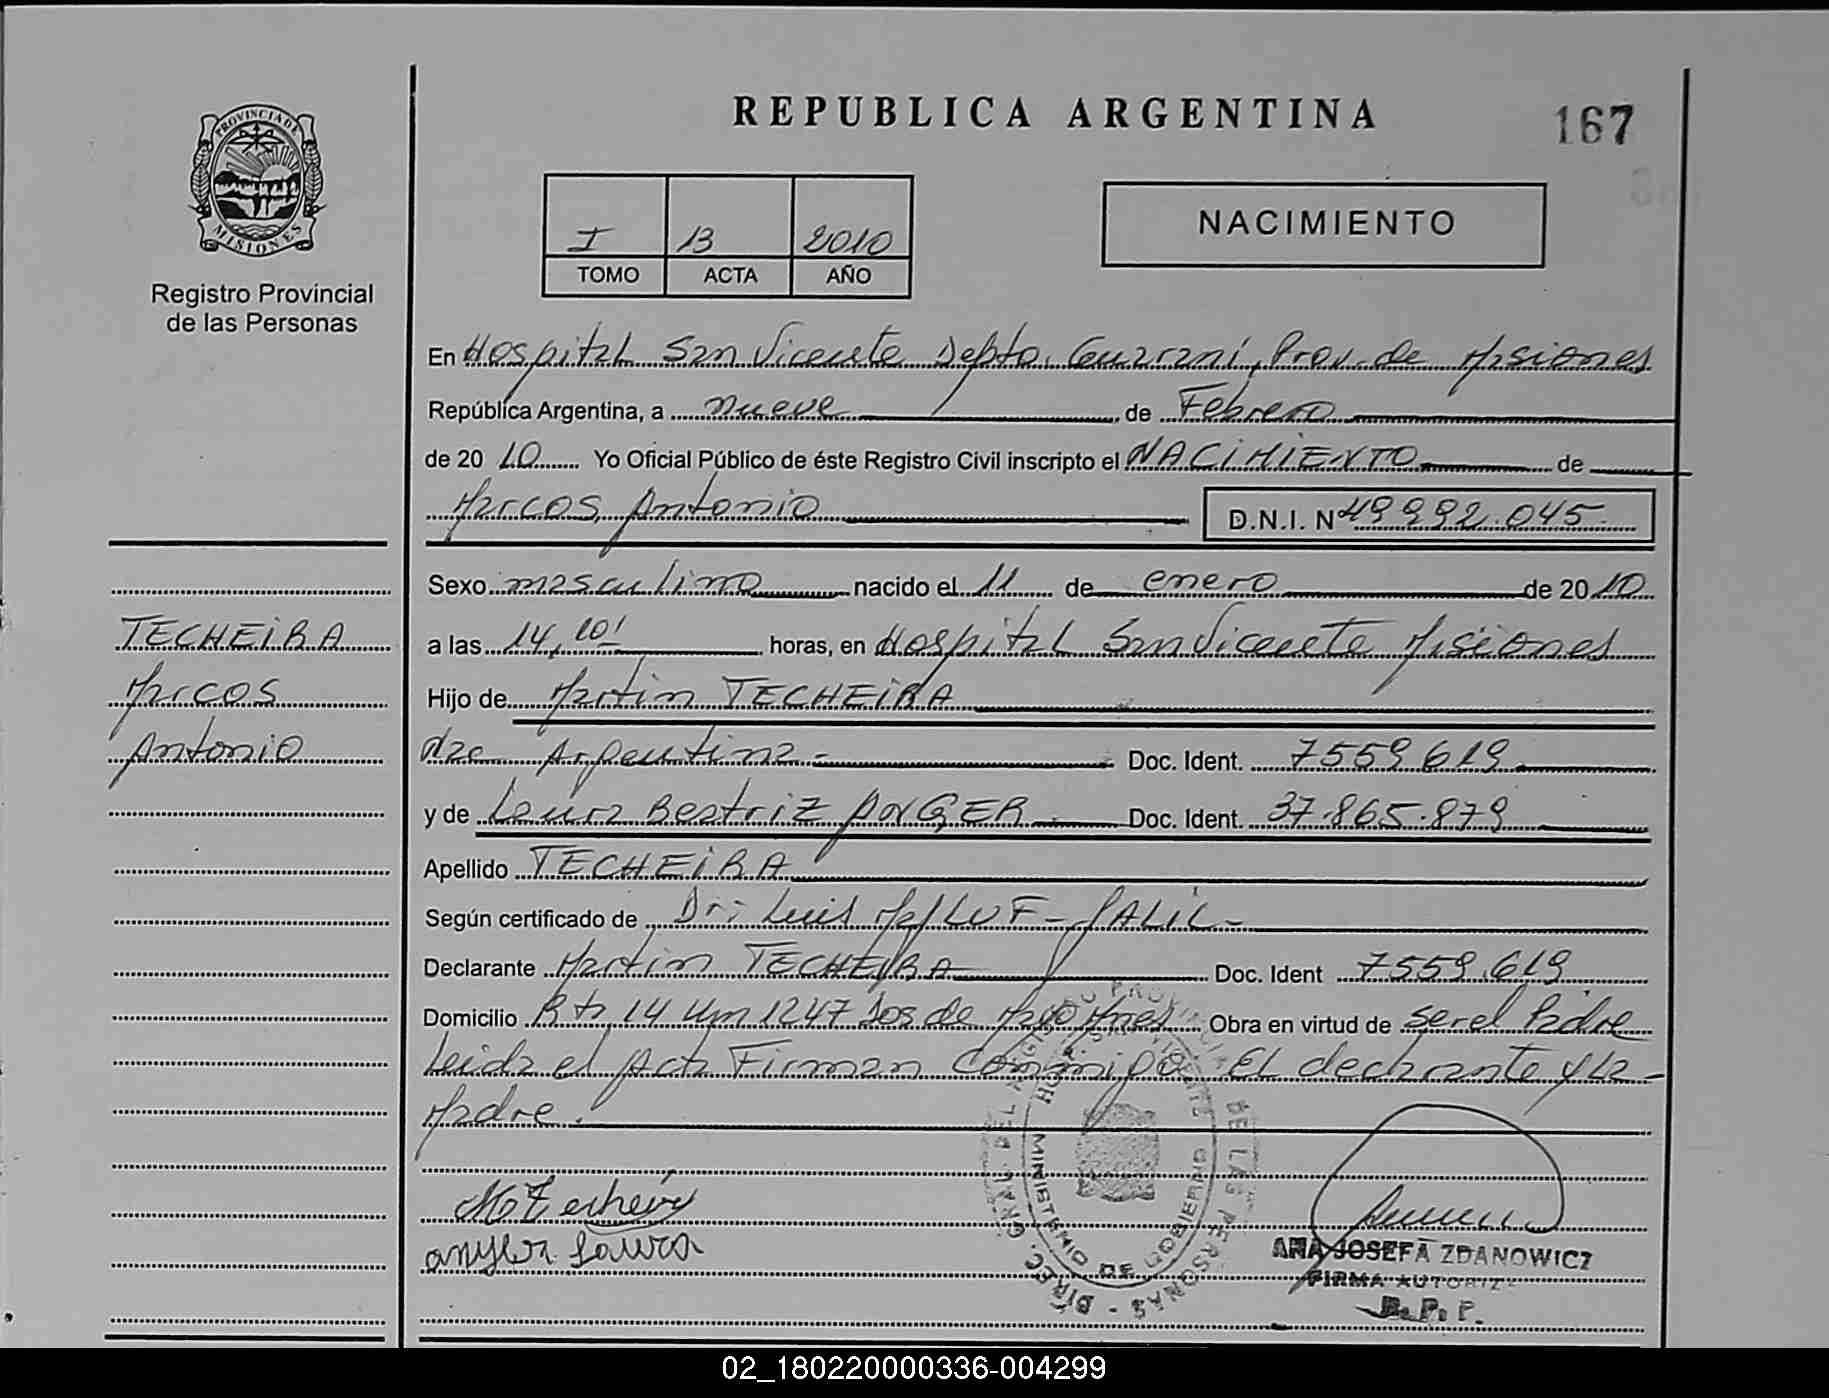 REPUBLICA ARGENTINA
167
PROVINCIA DE
MISIONES
Registro Provincial
de las Personas
I 13 2010
TOMO ACTA AÑO
NACIMIENTO
En Hospital San Vicente Depto. Guaraní, Prov. de Misiones
República Argentina, a nueve de Febrero
de 20 10 Yo Oficial Público de éste Registro Civil inscripto el NACIMIENTO de
Marcos Antonio D.N.I. Nº 49992.045
Sexo masculino nacido el 11 de enero de 2010
a las 14,10' horas, en Hospital San Vicente Misiones
Hijo de Martin TECHEiRA
nac Argentina - Doc. Ident. 7559619
y de Laura Beatriz ANGER Doc. Ident. 37.865.879
Apellido TECHEiRA
Según certificado de Dr: Luis MALUF - JALiL -
Declarante Martin TECHEiRA Doc. Ident 7559.619
Domicilio Rta 14 Km 1247 Dos de Mayo Mnes Obra en virtud de ser el Padre
Leida el Acta Firman Conmigo El declarante y la
Madre.
TECHEiRA
Marcos
Antonio
M Techeira
anger Laura
DIREC. GRAL DEL REGISTRO PROVINCIAL DE LAS PERSONAS
MINISTERIO DE GOBIERNO
ANA JOSEFA ZDANOWICZ
FIRMA AUTORIZ
R.P.P.
02_180220000336-004299